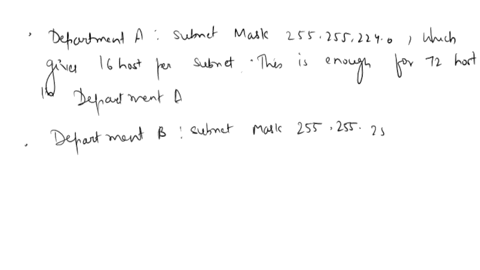 . Department A : Subnet Mask 255.255.224.0 , which
gives 16 host per subnet . This is enough for 72 host
Department A
. Department B : subnet mask 255.255.25